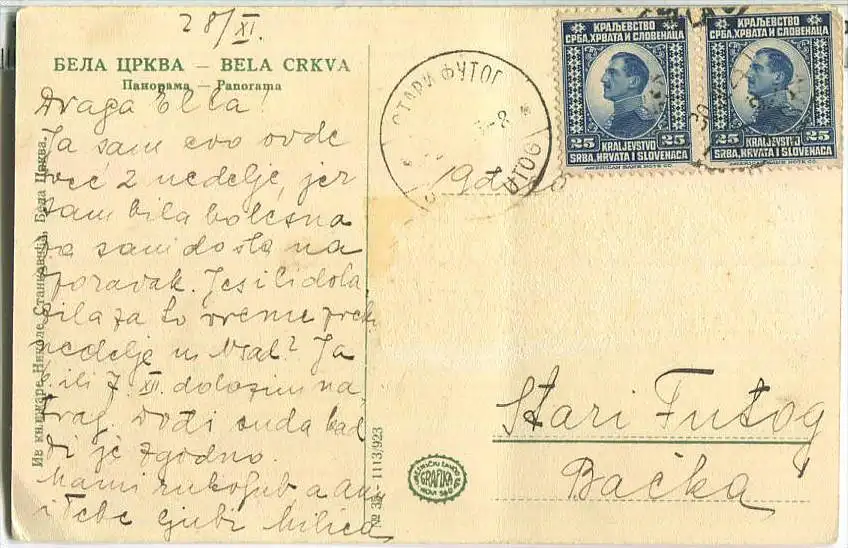 28/XI.
БЕЛА ЦРКВА — BELA CRKVA
Панорама — Panorama
Draga Ella!
Ja sam evo ovde
već 2 nedelje, jer
sam bila bolesna
pa sam došla na
oporavak. Jesi li dola
zila za to vreme preko
nedelje u
ili 7. XII. dolazim na
trag. Dođi onda kad
ti je zgodno.
Mami rukoljub a
i Tebe ljubi Milica
Из књижаре Николе Станковића, Бела Црква.
1113/923
GRAFIKA
НОВИ САД
СТАРИ ФУТОГ
КРАЉЕВСТВО
СРБА, ХРВАТА И СЛОВЕНАЦА
25 25
KRALJEVSTVO
SRBA, HRVATA I SLOVENACA
AMERICAN BANK NOTE CO.
КРАЉЕВСТВО
СРБА, ХРВАТА И СЛОВЕНАЦА
25 25
KRALJEVSTVO
SRBA, HRVATA I SLOVENACA
AMERICAN BANK NOTE CO.
Stari Futog
Bačka